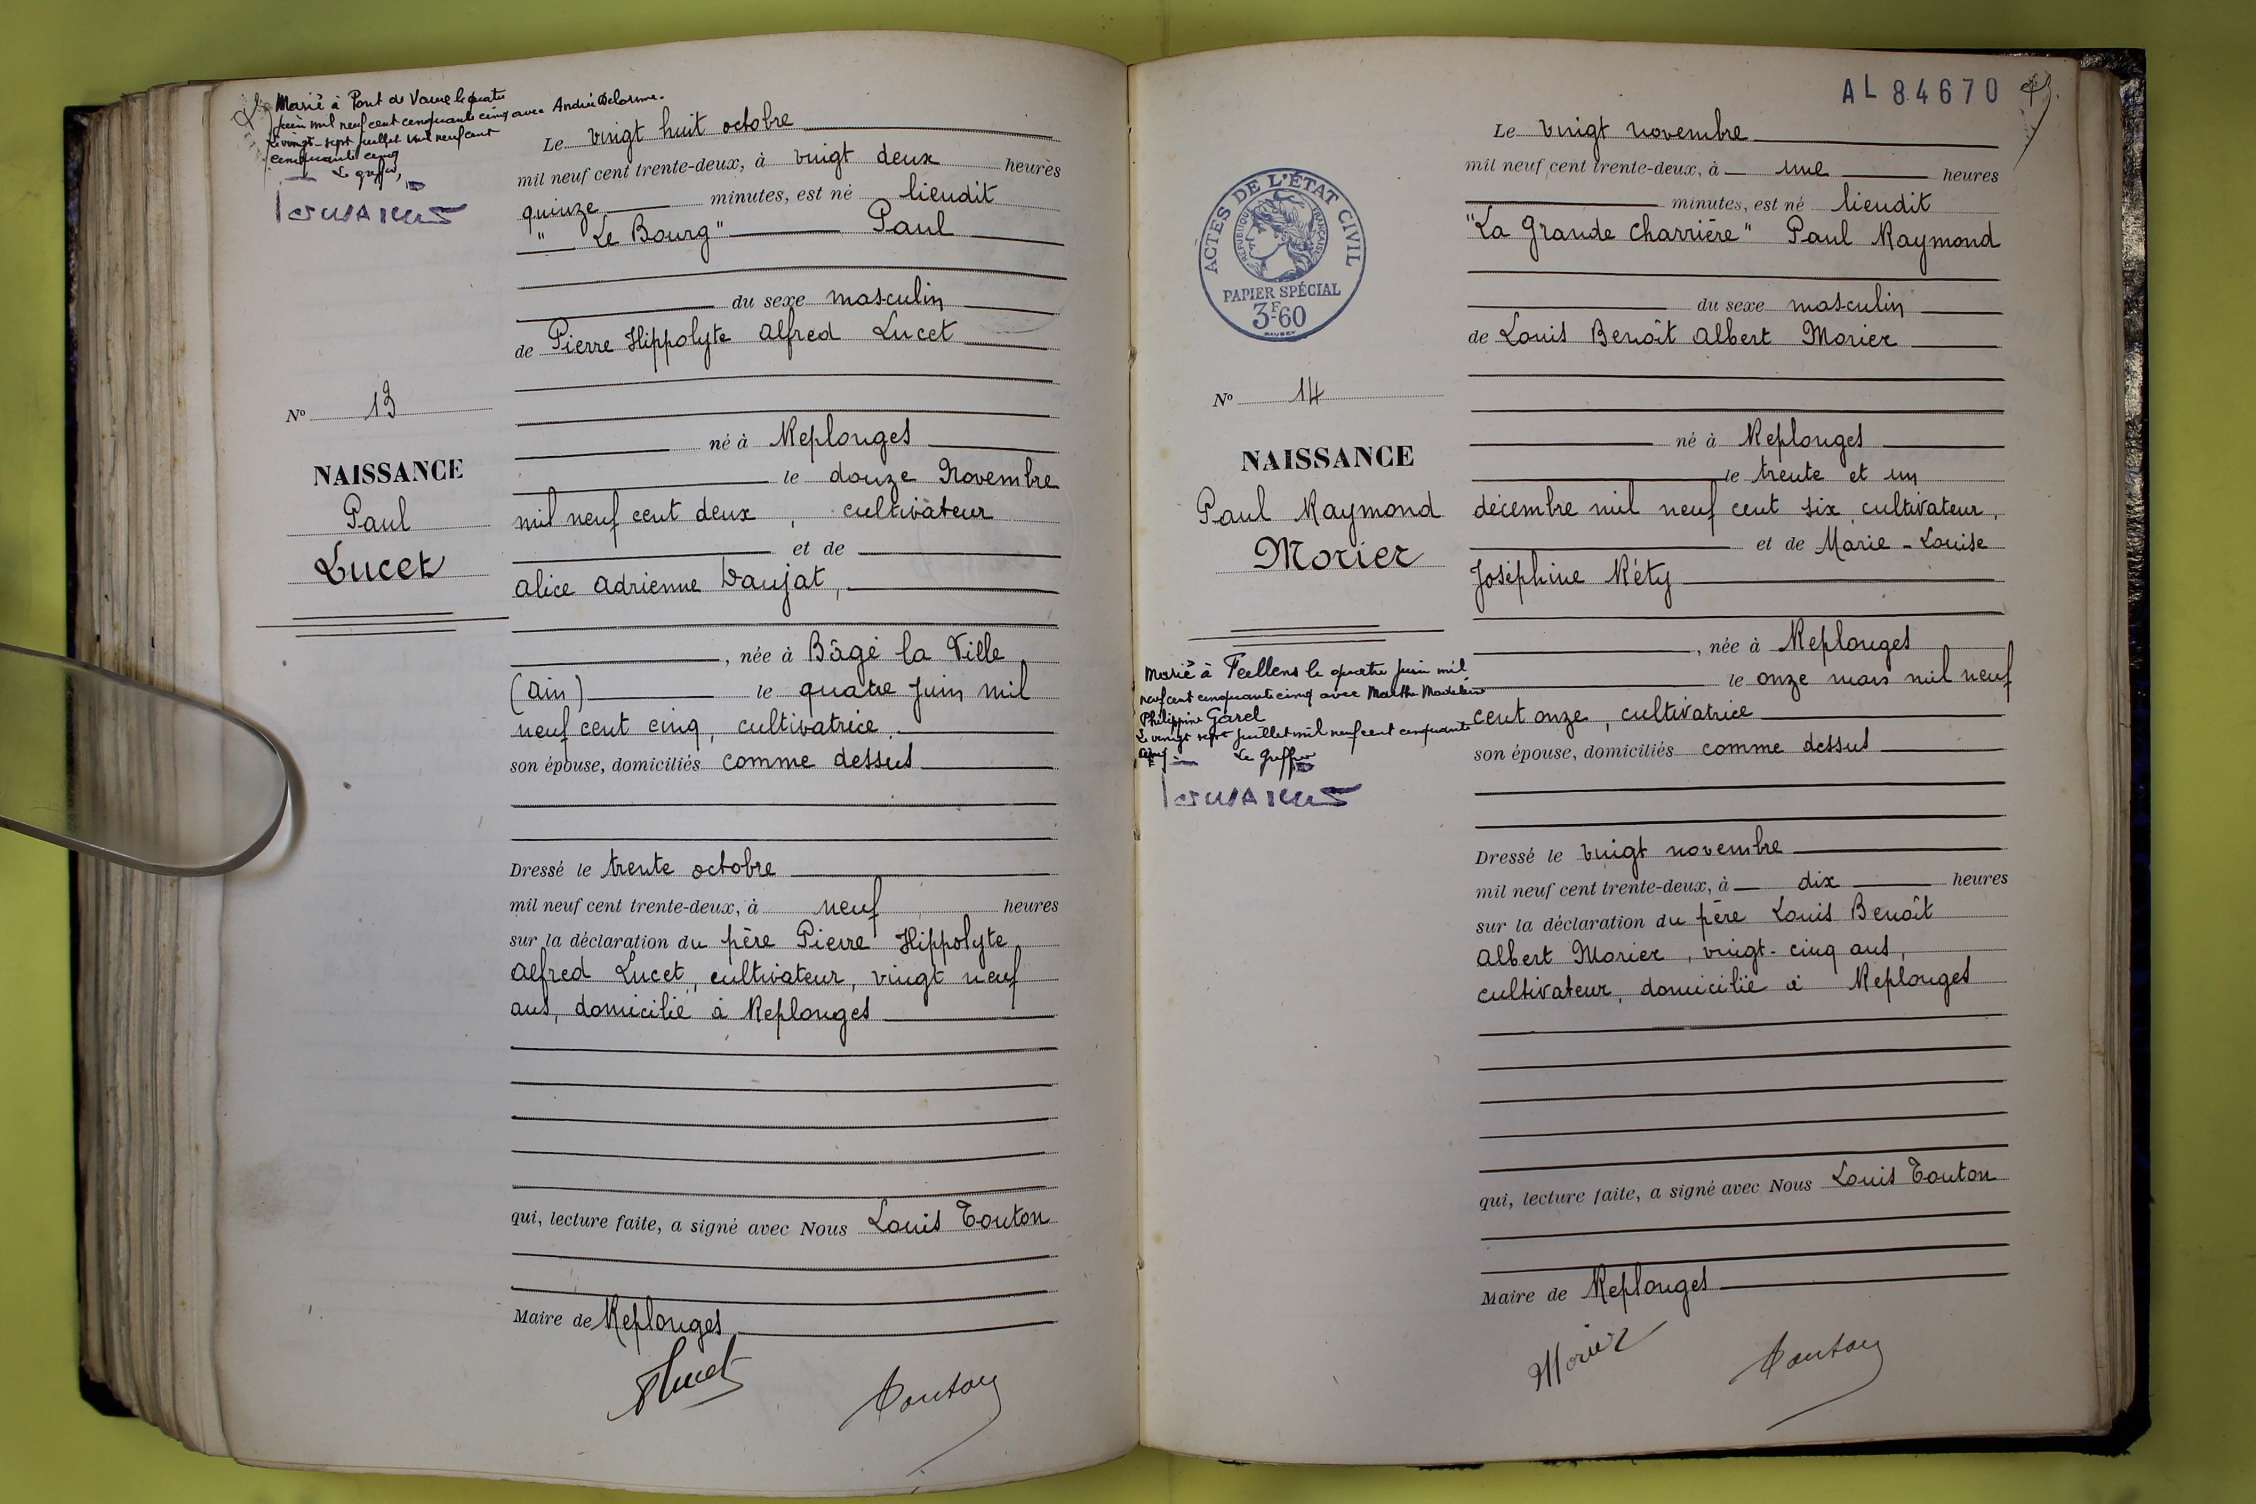 Marié à Pont de Vaux le quatre
juin mil neuf cent cinquante cinq avec Andrée Delorme.
Le vingt-sept juillet mil neuf cent
cinquante cinq
Le greffier,
Le vingt huit octobre
mil neuf cent trente-deux, à vingt deux heures
quinze minutes, est né lieudit
"Le Bourg" Paul
du sexe masculin
de Pierre Hippolyte Alfred Lucet
né à Replonges
le douze Novembre
mil neuf cent deux, cultivateur
et de
Alice Adrienne Daujat,
, née à Bâgé la Ville
(Ain) le quatre Juin mil
neuf cent cinq, cultivatrice,
son épouse, domiciliés comme dessus
Dressé le trente octobre
mil neuf cent trente-deux, à neuf heures
sur la déclaration du père Pierre Hippolyte
Alfred Lucet, cultivateur, vingt neuf
ans, domicilié à Replonges
qui, lecture faite, a signé avec Nous Louis Touton
Maire de Replonges
Lucet Touton
N° 13
NAISSANCE
Paul
Lucet
AL 84670
ACTES DE L'ÉTAT CIVIL
RÉPUBLIQUE FRANÇAISE
PAPIER SPÉCIAL
3F60
N° 14
NAISSANCE
Paul Raymond
Morier
Marié à Feillens le quatre juin mil
neuf cent cinquante cinq avec Marthe Madeleine
Philippine Garel
Le vingt sept juillet mil neuf cent cinquante
cinq
Le Greffier
Le vingt novembre
mil neuf cent trente-deux, à une heures
minutes, est né lieudit
"La Grande Charrière" Paul Raymond
du sexe masculin
de Louis Benoît Albert Morier
né à Replonges
le trente et un
décembre mil neuf cent six, cultivateur,
et de Marie-Louise
Joséphine Réty
, née à Replonges
le onze mars mil neuf
cent onze, cultivatrice
son épouse, domiciliés comme dessus
Dressé le vingt novembre
mil neuf cent trente-deux, à dix heures
sur la déclaration du père Louis Benoît
Albert Morier, vingt-cinq ans,
cultivateur, domicilié à Replonges
qui, lecture faite, a signé avec Nous Louis Touton
Maire de Replonges
Morier Touton